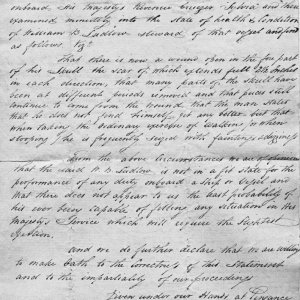 onboard His Majesty's Revenue Cruizer Sylvia and there
examined minutely into the state of health & condition
of William B. Ludlow steward of that vessel and find
as follows
that there is now a wound open in the fore part
of his Skull the scar of which extends full six inches
in each direction, that many parts of the skull have
been at different periods removed and that pieces still
continue to come from the wound that the man states
that he does not find himself yet any better and that
when taking the ordinary exercise of walking or when
stooping he is frequently seized with fainting & dizziness
From the above circumstances we are of opinion
that the said W. B. Ludlow is not in a fit state for the
performance of any duty onboard a ship or vessel and
that there does not appear to us the least probability of
his ever being capable of filling any situation in His
Majesty's Service which will require the slightest
exertion.
and we do further declare that we are willing
to make Oath to the correctness of this statement
and to the impartiality of our proceedings
Given under our Hands at Penzance